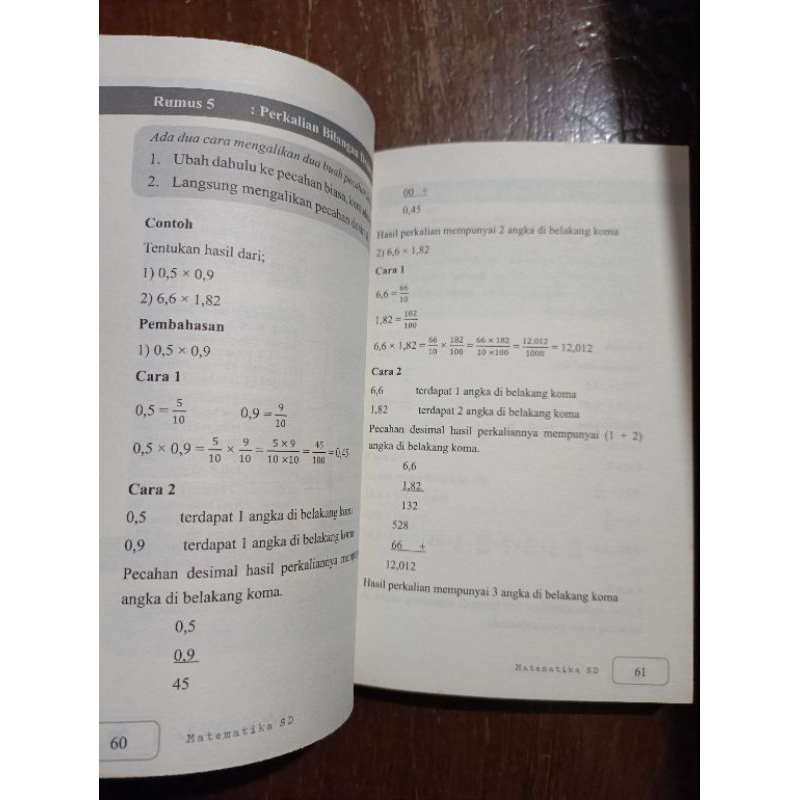 Rumus 5 : Perkalian Bilangan
Ada dua cara mengalikan dua buah
1. Ubah dahulu ke pecahan biasa,
2. Langsung mengalikan pecahan
Contoh
Tentukan hasil dari;
1) 0,5 × 0,9
2) 6,6 × 1,82
Pembahasan
1) 0,5 × 0,9
Cara 1
0,5 = 5/10 0,9 = 9/10
0,5 × 0,9 = 5/10 × 9/10 = 5 × 9/10 ×10 = 45/100 = 0,45
Cara 2
0,5 terdapat 1 angka di belakang koma
0,9 terdapat 1 angka di belakang koma
Pecahan desimal hasil perkaliannya
angka di belakang koma.
0,5
0,9
45
60 Matematika SD
00 +
0,45
Hasil perkalian mempunyai 2 angka di belakang koma
2) 6,6 × 1,82
Cara 1
6,6 = 66/10
1,82 = 182/100
6,6 × 1,82 = 66/10 × 182/100 = 66 × 182/10 ×100 = 12.012/1000 = 12,012
Cara 2
6,6 terdapat 1 angka di belakang koma
1,82 terdapat 2 angka di belakang koma
Pecahan desimal hasil perkaliannya mempunyai (1 + 2)
angka di belakang koma.
6,6
1,82
132
528
66 +
12,012
Hasil perkalian mempunyai 3 angka di belakang koma
Matematika SD 61